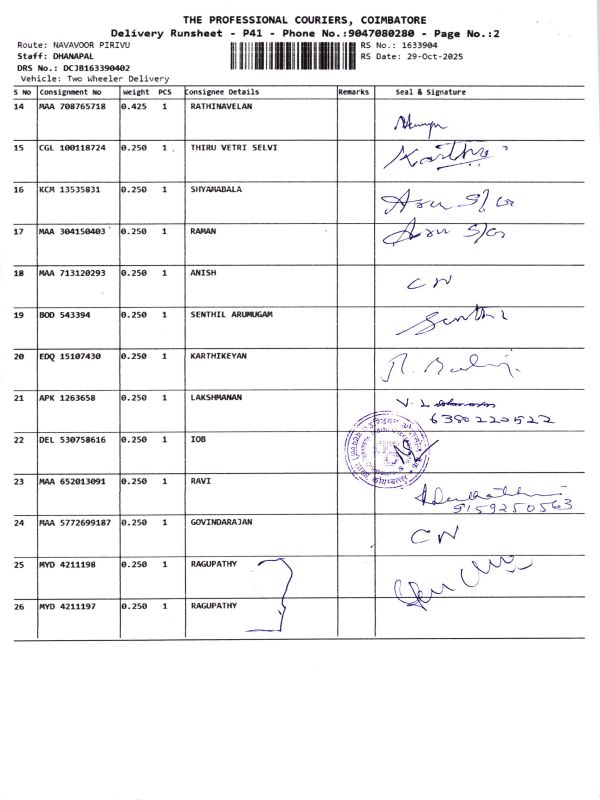 THE PROFESSIONAL COURIERS, COIMBATORE
Delivery Runsheet - P41 - Phone No.:9047080280 - Page No.:2
Route: NAVAVOOR PIRIVU RS No.: 1633904
Staff: DHANAPAL RS Date: 29-Oct-2025
DRS No.: DCJB163390402
Vehicle: Two Wheeler Delivery
S No Consignment No Weight PCS Consignee Details Remarks Seal & Signature
14 MAA 708765718 0.425 1 RATHINAVELAN
15 CGL 100118724 0.250 1 THIRU VETRI SELVI Karthi
16 KCM 13535831 0.250 1 SHYAMABALA Aru S/o
17 MAA 304150403 0.250 1 RAMAN Aru S/o
18 MAA 713120293 0.250 1 ANISH CN
19 BOD 543394 0.250 1 SENTHIL ARUMUGAM Senthil
20 EDQ 15107430 0.250 1 KARTHIKEYAN
21 APK 1263658 0.250 1 LAKSHMANAN V. L
6380220522
22 DEL 530758616 0.250 1 IOB
23 MAA 652013091 0.250 1 RAVI
9159250563
24 MAA 5772699187 0.250 1 GOVINDARAJAN CN
25 MYD 4211198 0.250 1 RAGUPATHY
26 MYD 4211197 0.250 1 RAGUPATHY